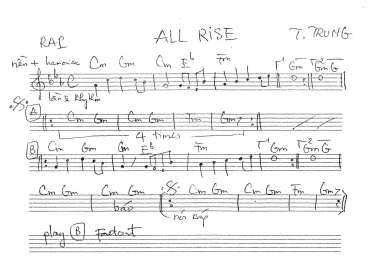 RAI ALL RISE T. TRUNG
nền + harmonica Cm Gm Cm Eb Fm 1 Gm 2 Gm G
C
A Cm Gm Cm Gm Fm Gm7
4 times
B Cm Gm Cm Gm Eb Fm 1 Gm 2 Gm G
Cm Gm Cm Gm Cm Gm Cm Gm Fm Gm7
play B Fadeout